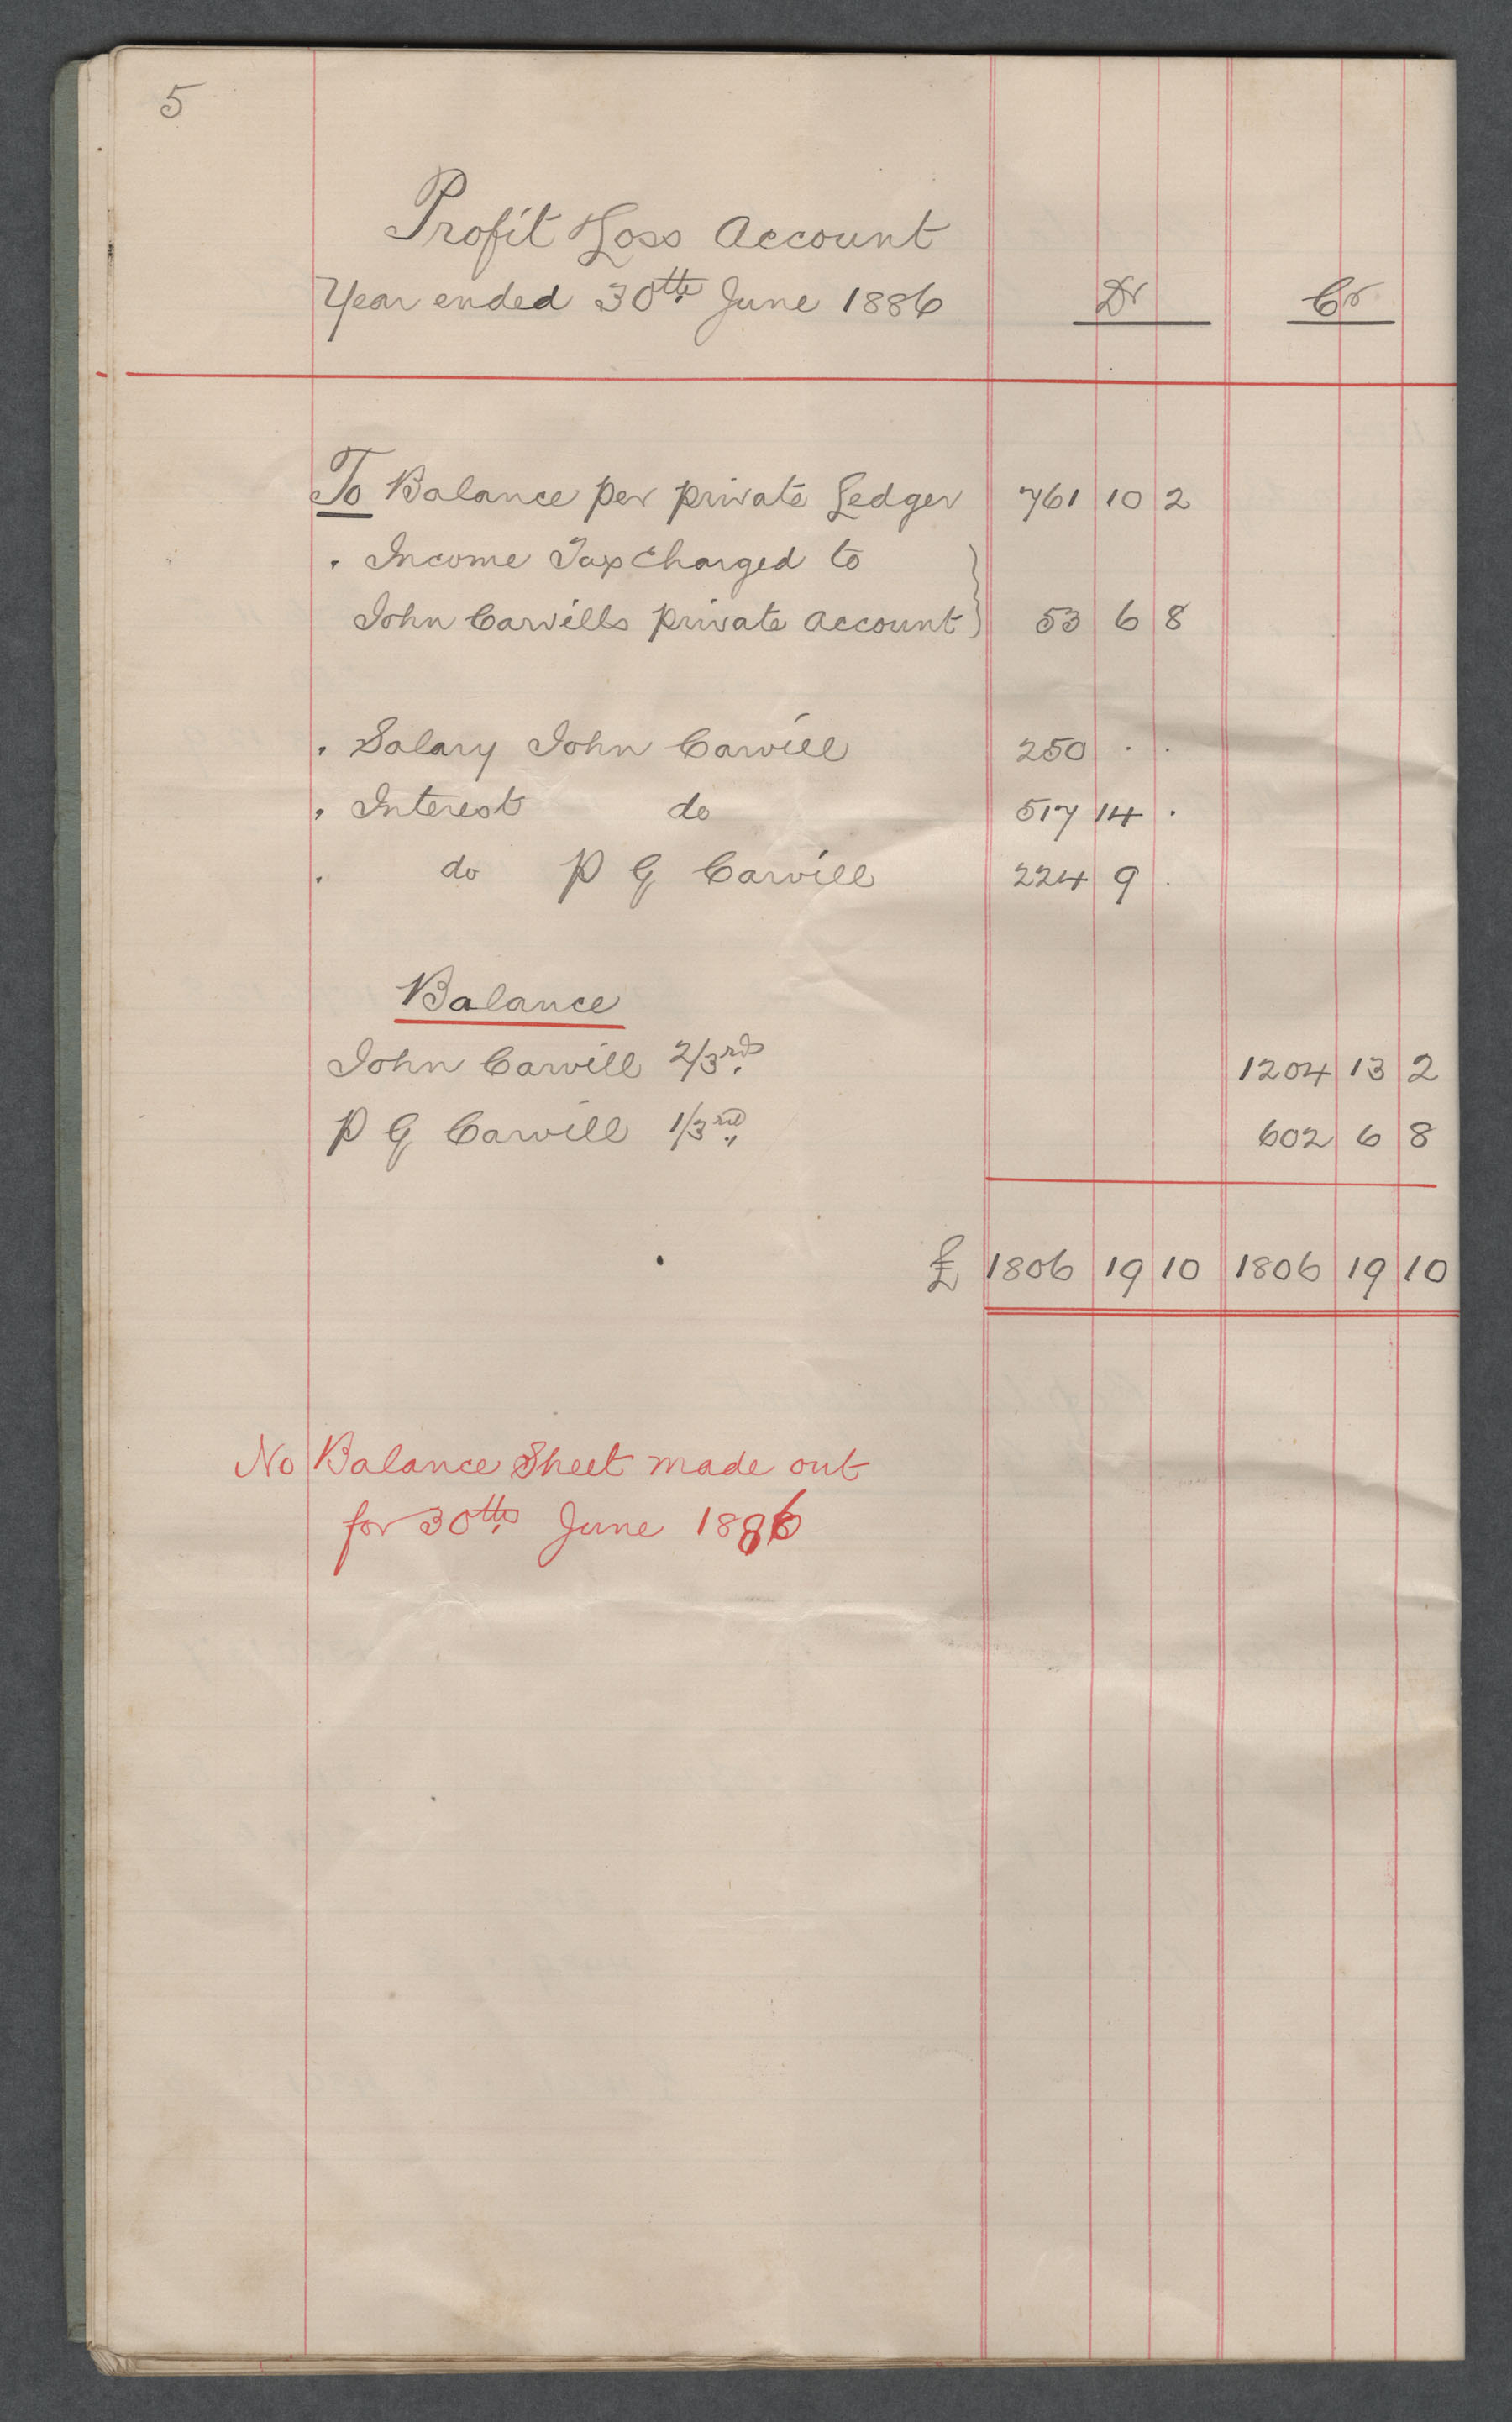 5
Profit & Loss Account
Year ended 30th June 1886 Dr Cr
To Balance per private Ledger 761 10 2
" Income Tax Charged to
John Carvills private Account } 53 6 8
" Salary John Carvill 250 . .
" Interest do 517 14 .
" do P G Carvill 224 9 .
Balance
John Carvill 2/3rds 1204 13 2
P G Carvill 1/3rd 602 6 8
£ 1806 19 10 1806 19 10
No Balance Sheet made out
for 30th June 1886